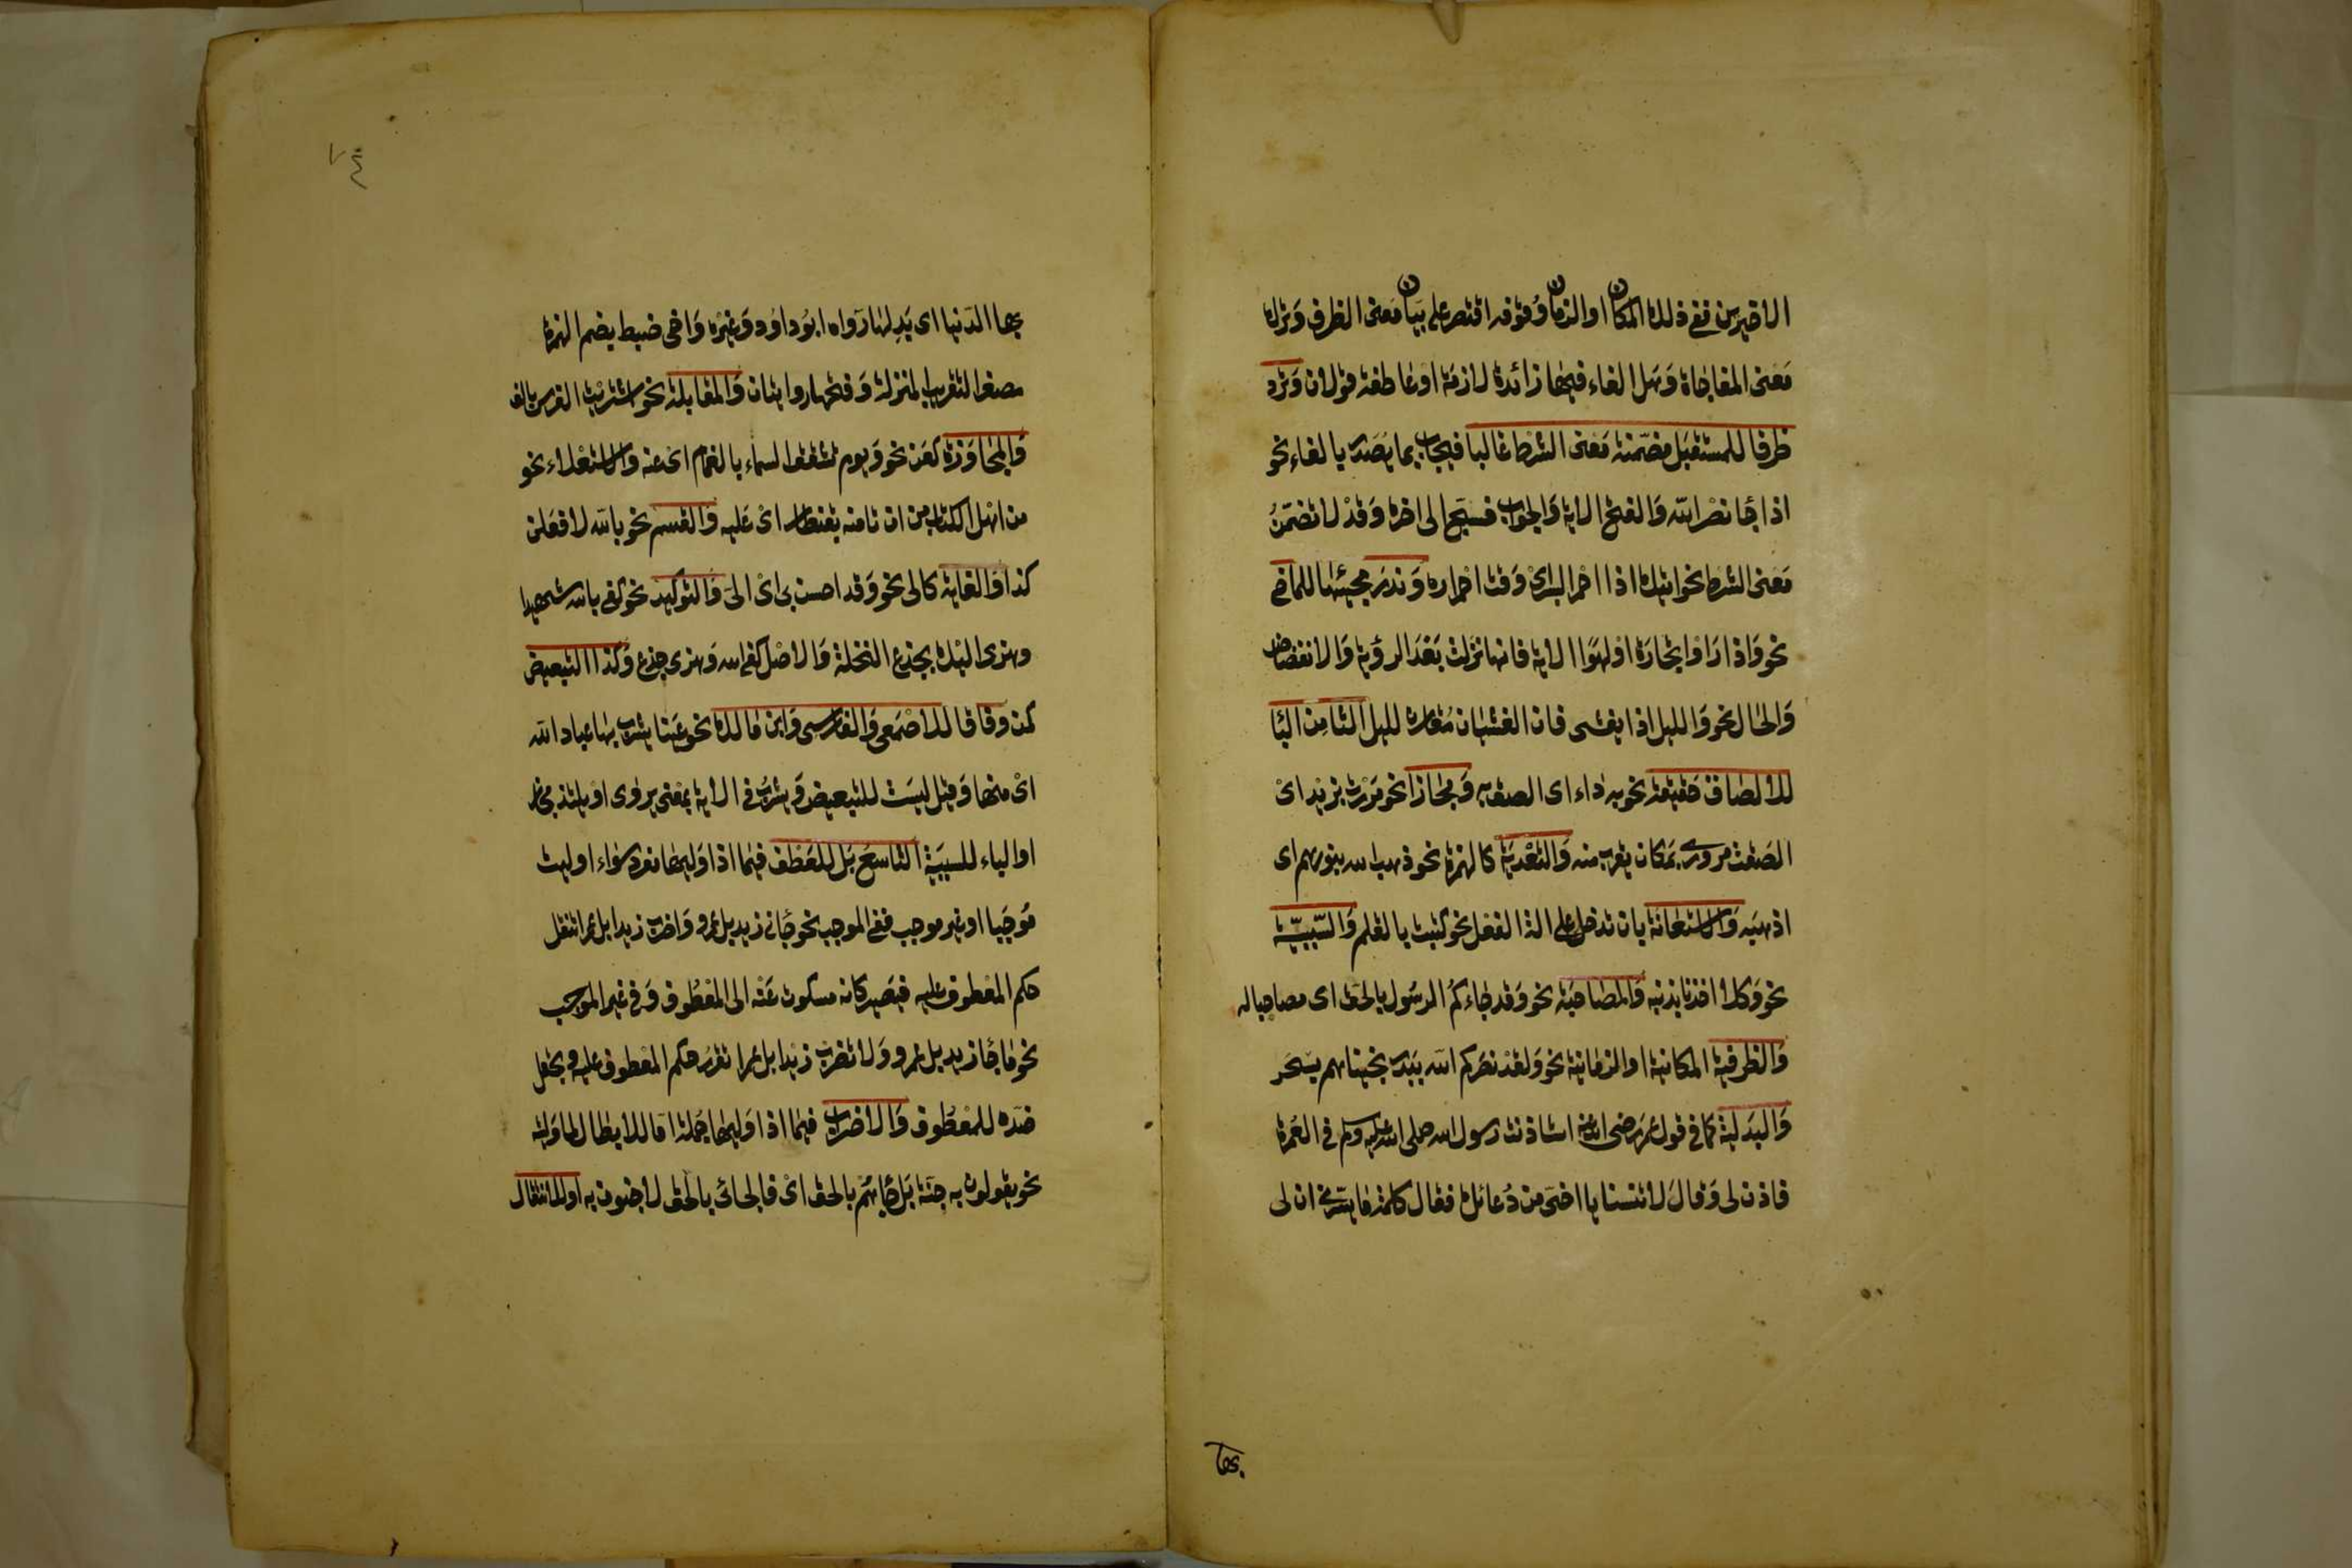 الاخيرين ففي ذلك المكان او الزمان وقوفه اقتصر على بيان معنى الظرف وترك
معنى المفاجاة وهل الفاء فيها زائدة لازمة او عاطفة قولان وترد
ظرفا للمستقبل مضمنة معنى الشرط غالبا فيجاب بما يصدر بالفاء نحو
اذا جا نصر الله والفتح الاية والجواب فسبح الى اخره وقد لا تضمن
معنى الشرط نحو اتيك اذا احمر البسر اى وقت احمراره وندر مجيئها للماضي
نحو واذا راوا تجارة او لهوا الاية فانها نزلت بعد الرؤية والانفضاض
والحال نحو والليل اذا يغشى فان الغشيان مقارن لليل الثامن البا
للالصاق حقيقة نحو به داء اى الصق به ومجازا نحو مررت بزيد اى
الصقت مرورى بمكان يقرب منه والتعدية كالهمزة نحو ذهب الله بنورهم اى
اذهبه والاستعانة بان تدخل على الة الفعل نحو كتبت بالقلم والسببية
نحو وكلا اخذنا بذنبه والمصاحبة نحو وقد جاءكم الرسول بالحق اى مصاحبا له
والظرفية المكانية او الزمانية نحو ولقد نصركم الله ببدر نجيناهم بسحر
والبدلية كما في قول عمر رضى الله عنه استاذنت رسول الله صلى الله عليه وسلم في العمرة
فاذن لى وقال لا تنسنا يا اخى من دعائك فقال كلمة ما يسرني ان لى
بها
بها الدنيا اى بدلها رواه ابو داود وغيره واخى ضبط بضم الهمزة
مصغرا لتقريب المنزلة وفتحها روايتان والمقابلة نحو اشتريت الفرس بالف
والمجاوزة كعن نحو ويوم تشقق السماء بالغمام اى عنه والاستعلاء نحو
من اهل الكتاب من ان تامنه بقنطار اى عليه والقسم نحو بالله لافعلن
كذا والغاية كالى نحو وقد احسن بى اى الى والتوكيد نحو كفى بالله شهيدا
وهزى اليك بجذع النخلة والاصل كفى الله وهزى جذع وكذا التبعيض
كمن وفاقا للاصمعى والفارسى وابن مالك نحو عينا يشرب بها عباد الله
اى منها وقيل ليست للتبعيض ويشرب في الاية بمعنى يروى او يلتذ مجازا
او الباء للسببية التاسع بل للعطف فيما اذا وليها مفرد سواء اوليت
موجبا او غير موجب ففي الموجب نحو جاني زيد بل عمرو واضرب زيدا بل عمرا تنقل
حكم المعطوف عليه فيصير كانه مسكوت عنه الى المعطوف وفي غير الموجب
نحو ما جا زيد بل عمرو ولا تضرب زيدا بل عمرا تقرر حكم المعطوف عليه وتجعل
ضده للمعطوف والاضراب فيما اذا وليها جملة اما للابطال لما وليته
نحو يقولون به جنة بل جاءهم بالحق اى فالجائى بالحق لا جنون به او للانتقال